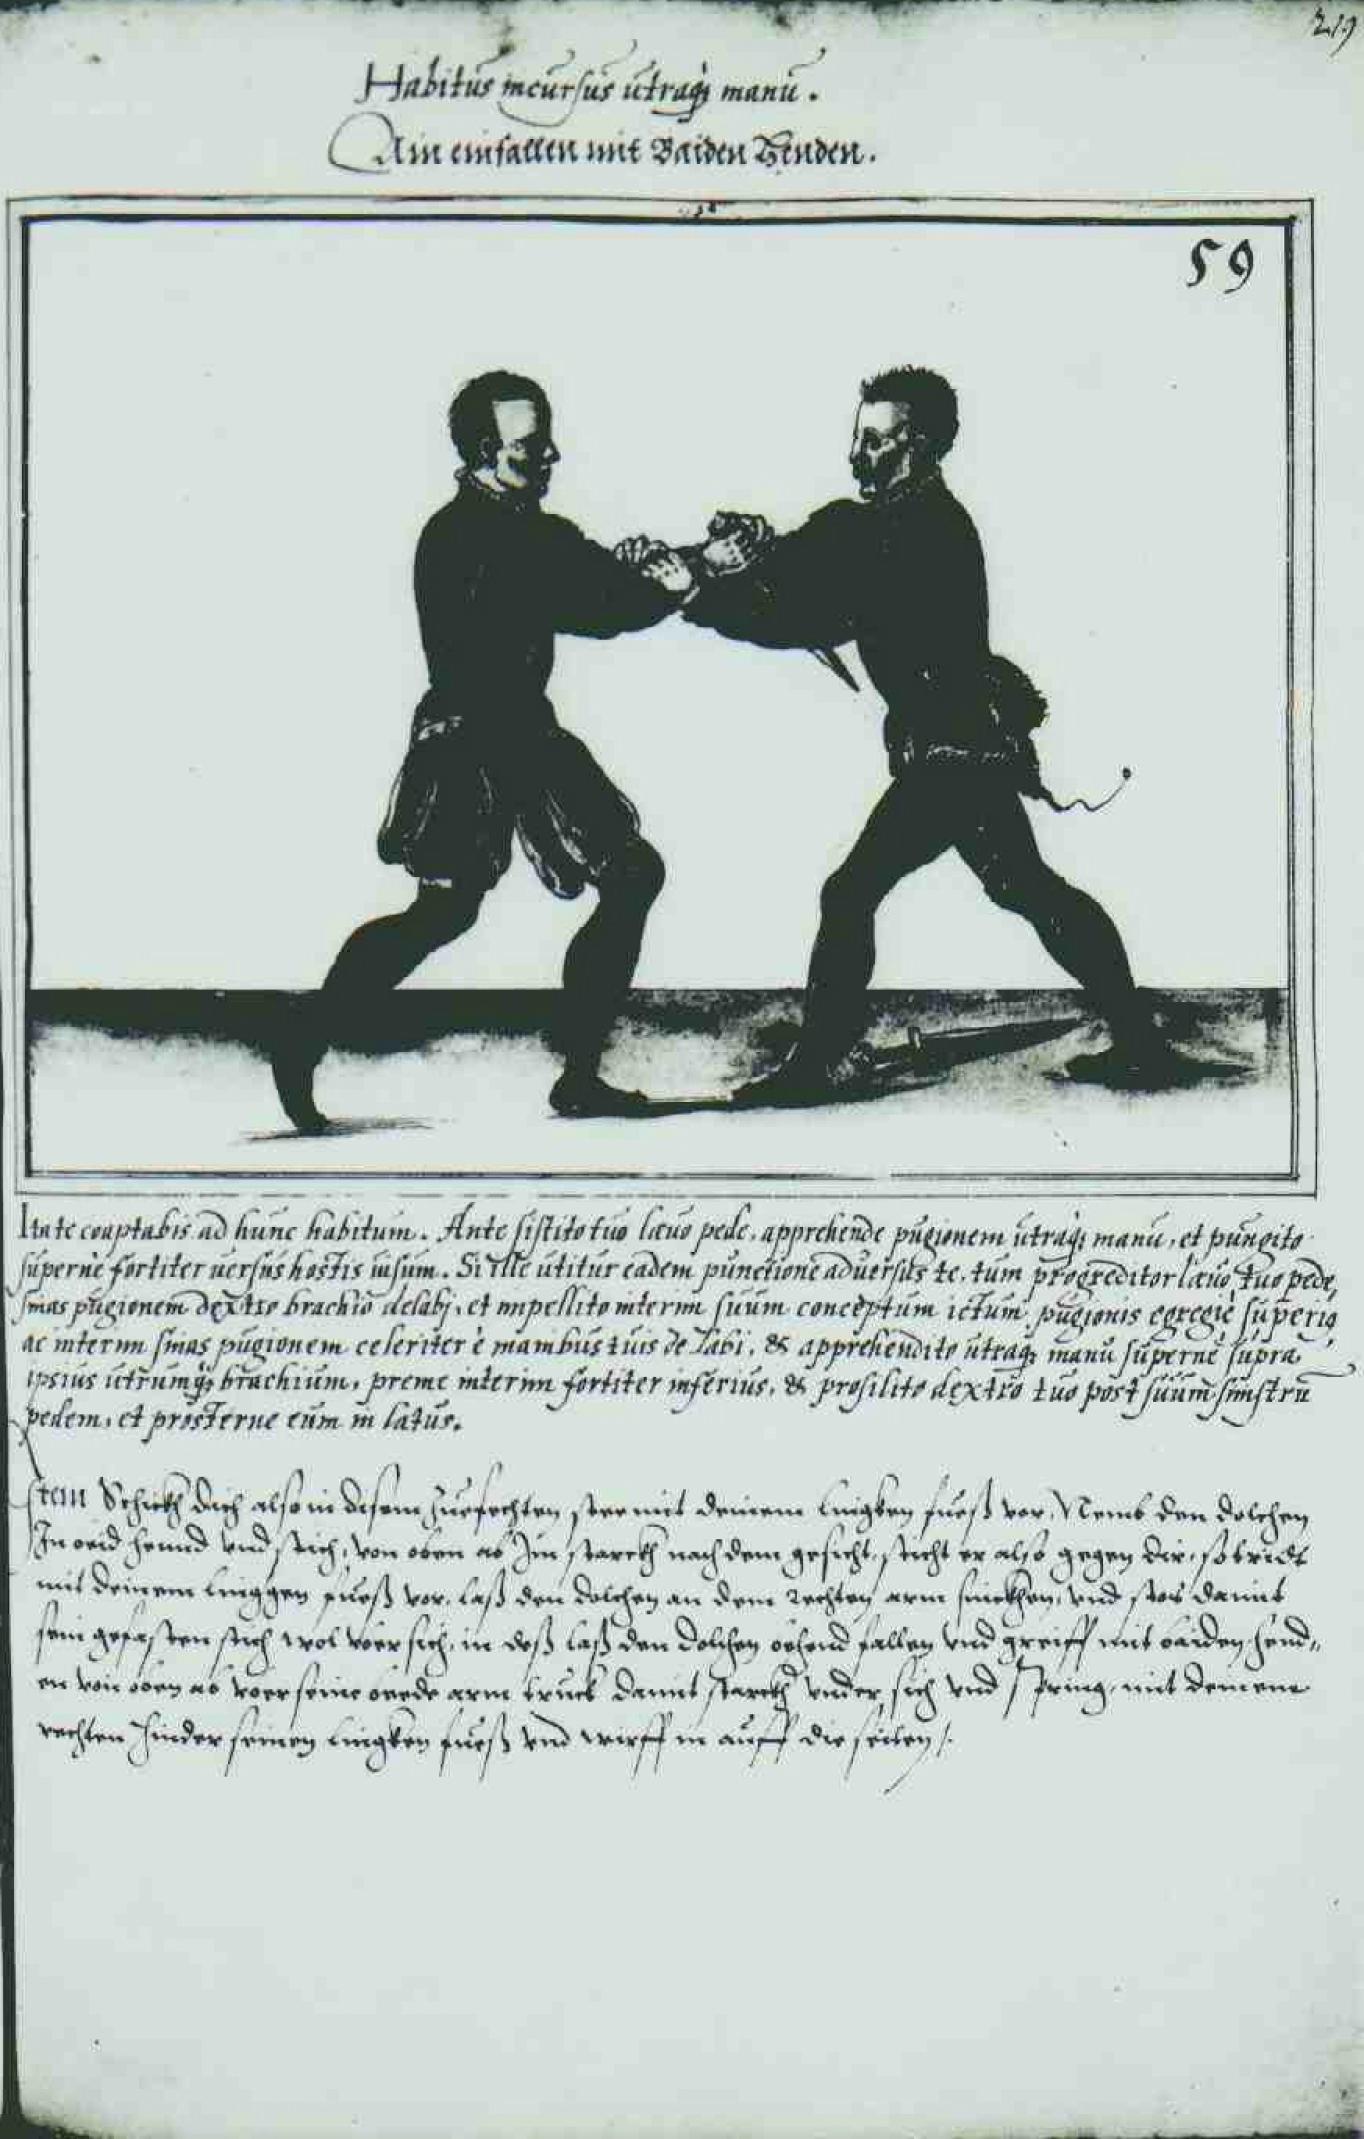 219
Habitus incursus utraq; manu.
Ain einfallen mit Baiden Henden.
59
Ita te coaptabis ad hunc habitum. Ante sistito tuo lævo pede, apprehende pugionem utraq; manu, et pungito
supernè fortiter versus hostis visum. Si ille utitur eadem punctione adversus te, tum progreditor lævo tuo pede,
sinas pugionem dextro brachio delabj, et impellito interim suum conceptum ictum pugionis egregiè superiq
ac interim sinas pugionem celeriter è manibus tuis delabi, & apprehendito utraq; manu supernè supra
ipsius utrumq; brachium, preme interim fortiter inferius, & prosilito dextro tuo post suum sinistrũ
pedem, et prosterne eum in latus.
Item Schickh dich also in disem zuefechten stee mit deinem linggken fueß vor, Nemb den dolchen
In beid hennd vnd stich, von oben ab Im starckh nach dem gesicht, sticht er also gegen dir, so tridt
mit deinem linggen fueß vor, laß den dolchen an dem rechten arm sinckhen, vnd stos damit
sein gefasten stich wol vber sich, in deß laß den dolchen behend fallen vnd greiff mit baiden hend„
en von oben ab vber seine beede arm truck damit starckh vnder sich vnd spring, mit deinem
rechten hinder seinen linggken fueß vnd wirff in auff die seiten /.